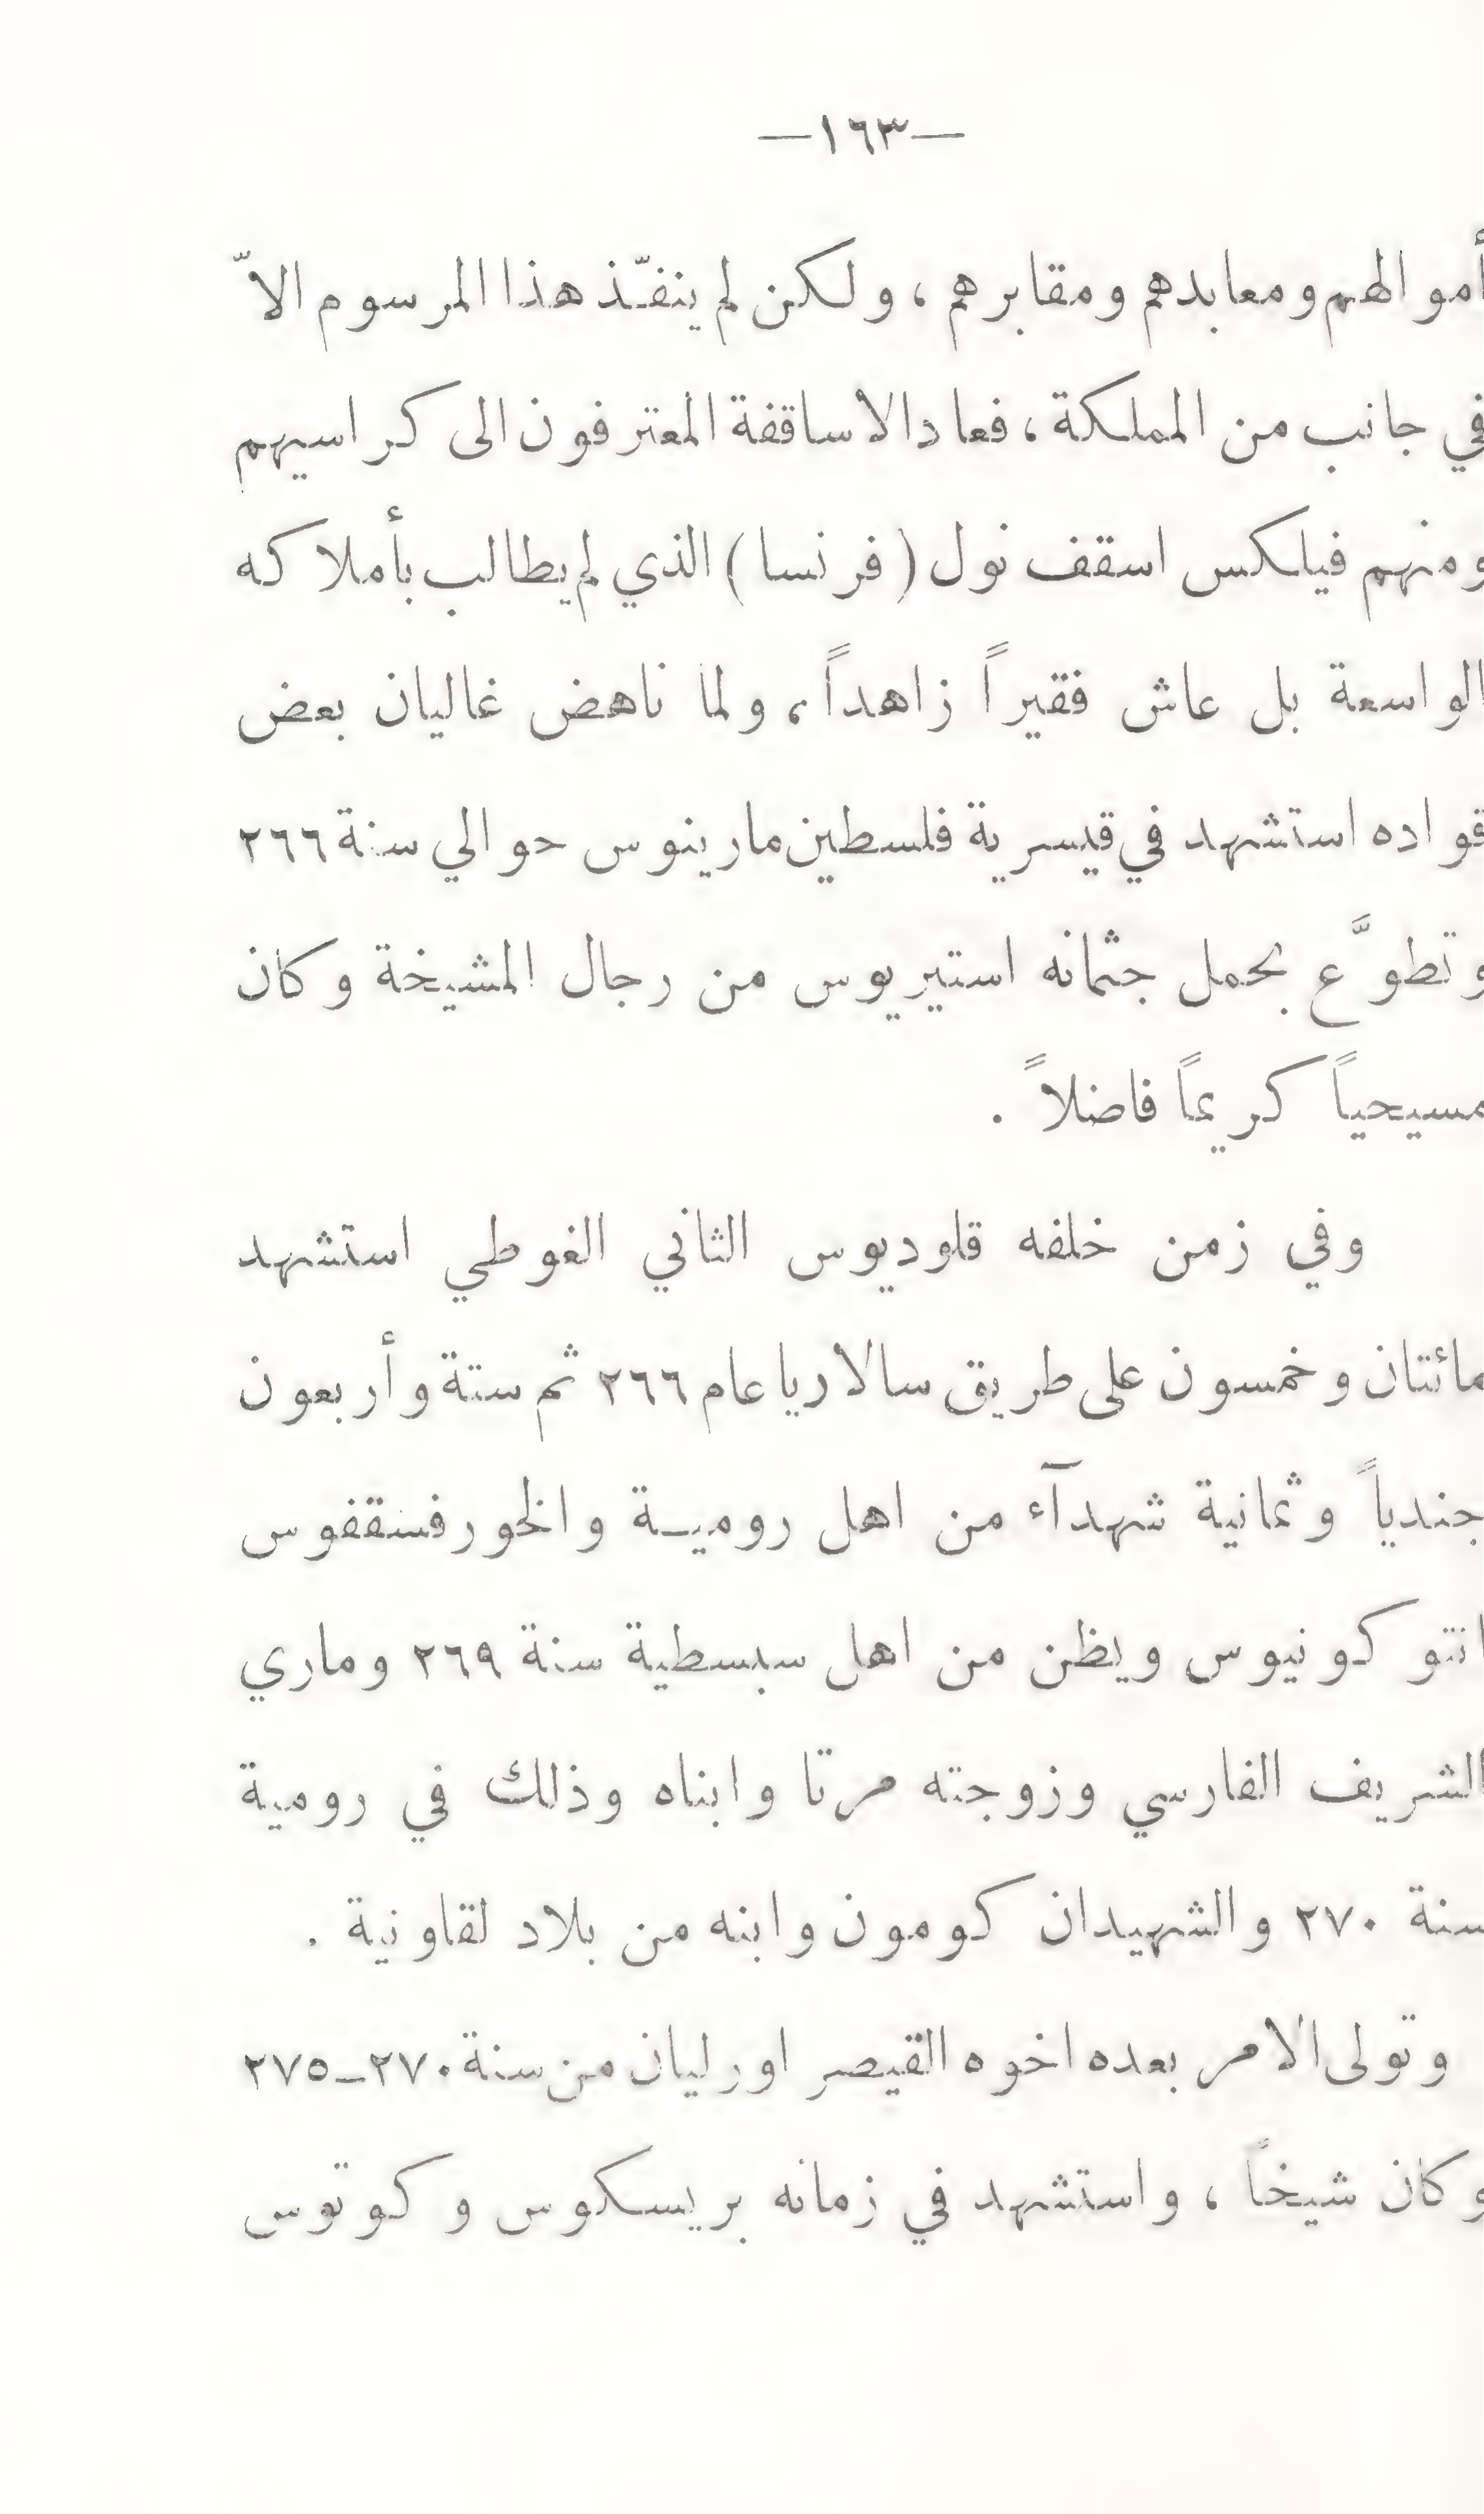 —١٦٣—
أموالهم ومعابدهم ومقابرهم ، ولكن لم ينفّذ هذا المرسوم الاّ
في جانب من المملكة ، فعاد الاساقفة المعترفون الى كراسيهم
ومنهم فيلكس اسقف نول ( فرنسا ) الذي لم يطالب بأملاكه
الواسعة بل عاش فقيراً زاهداً ، ولما ناهض غاليان بعض
قواده استشهد في قيسرية فلسطين مارينوس حوالي سنة ٢٦٦
وتطوَّع بحمل جثمانه استيريوس من رجال المشيخة وكان
مسيحياً كريماً فاضلاً .
وفي زمن خلفه قلوديوس الثاني الغوطي استشهد
مائتان وخمسون على طريق سالاريا عام ٢٦٦ ثم ستة وأربعون
جندياً وثمانية شهدآء من اهل رومية والخورفسقفوس
انتوكونيوس ويظن من اهل سبسطية سنة ٢٦٩ وماري
الشريف الفارسي وزوجته مرتا وابناه وذلك في رومية
سنة ٢٧٠ والشهيدان كومون وابنه من بلاد لقاونية .
وتولى الامر بعده اخوه القيصر اورليان من سنة ٢٧٠ـ٢٧٥
وكان شيخاً ، واستشهد في زمانه بريسكوس وكوتوس